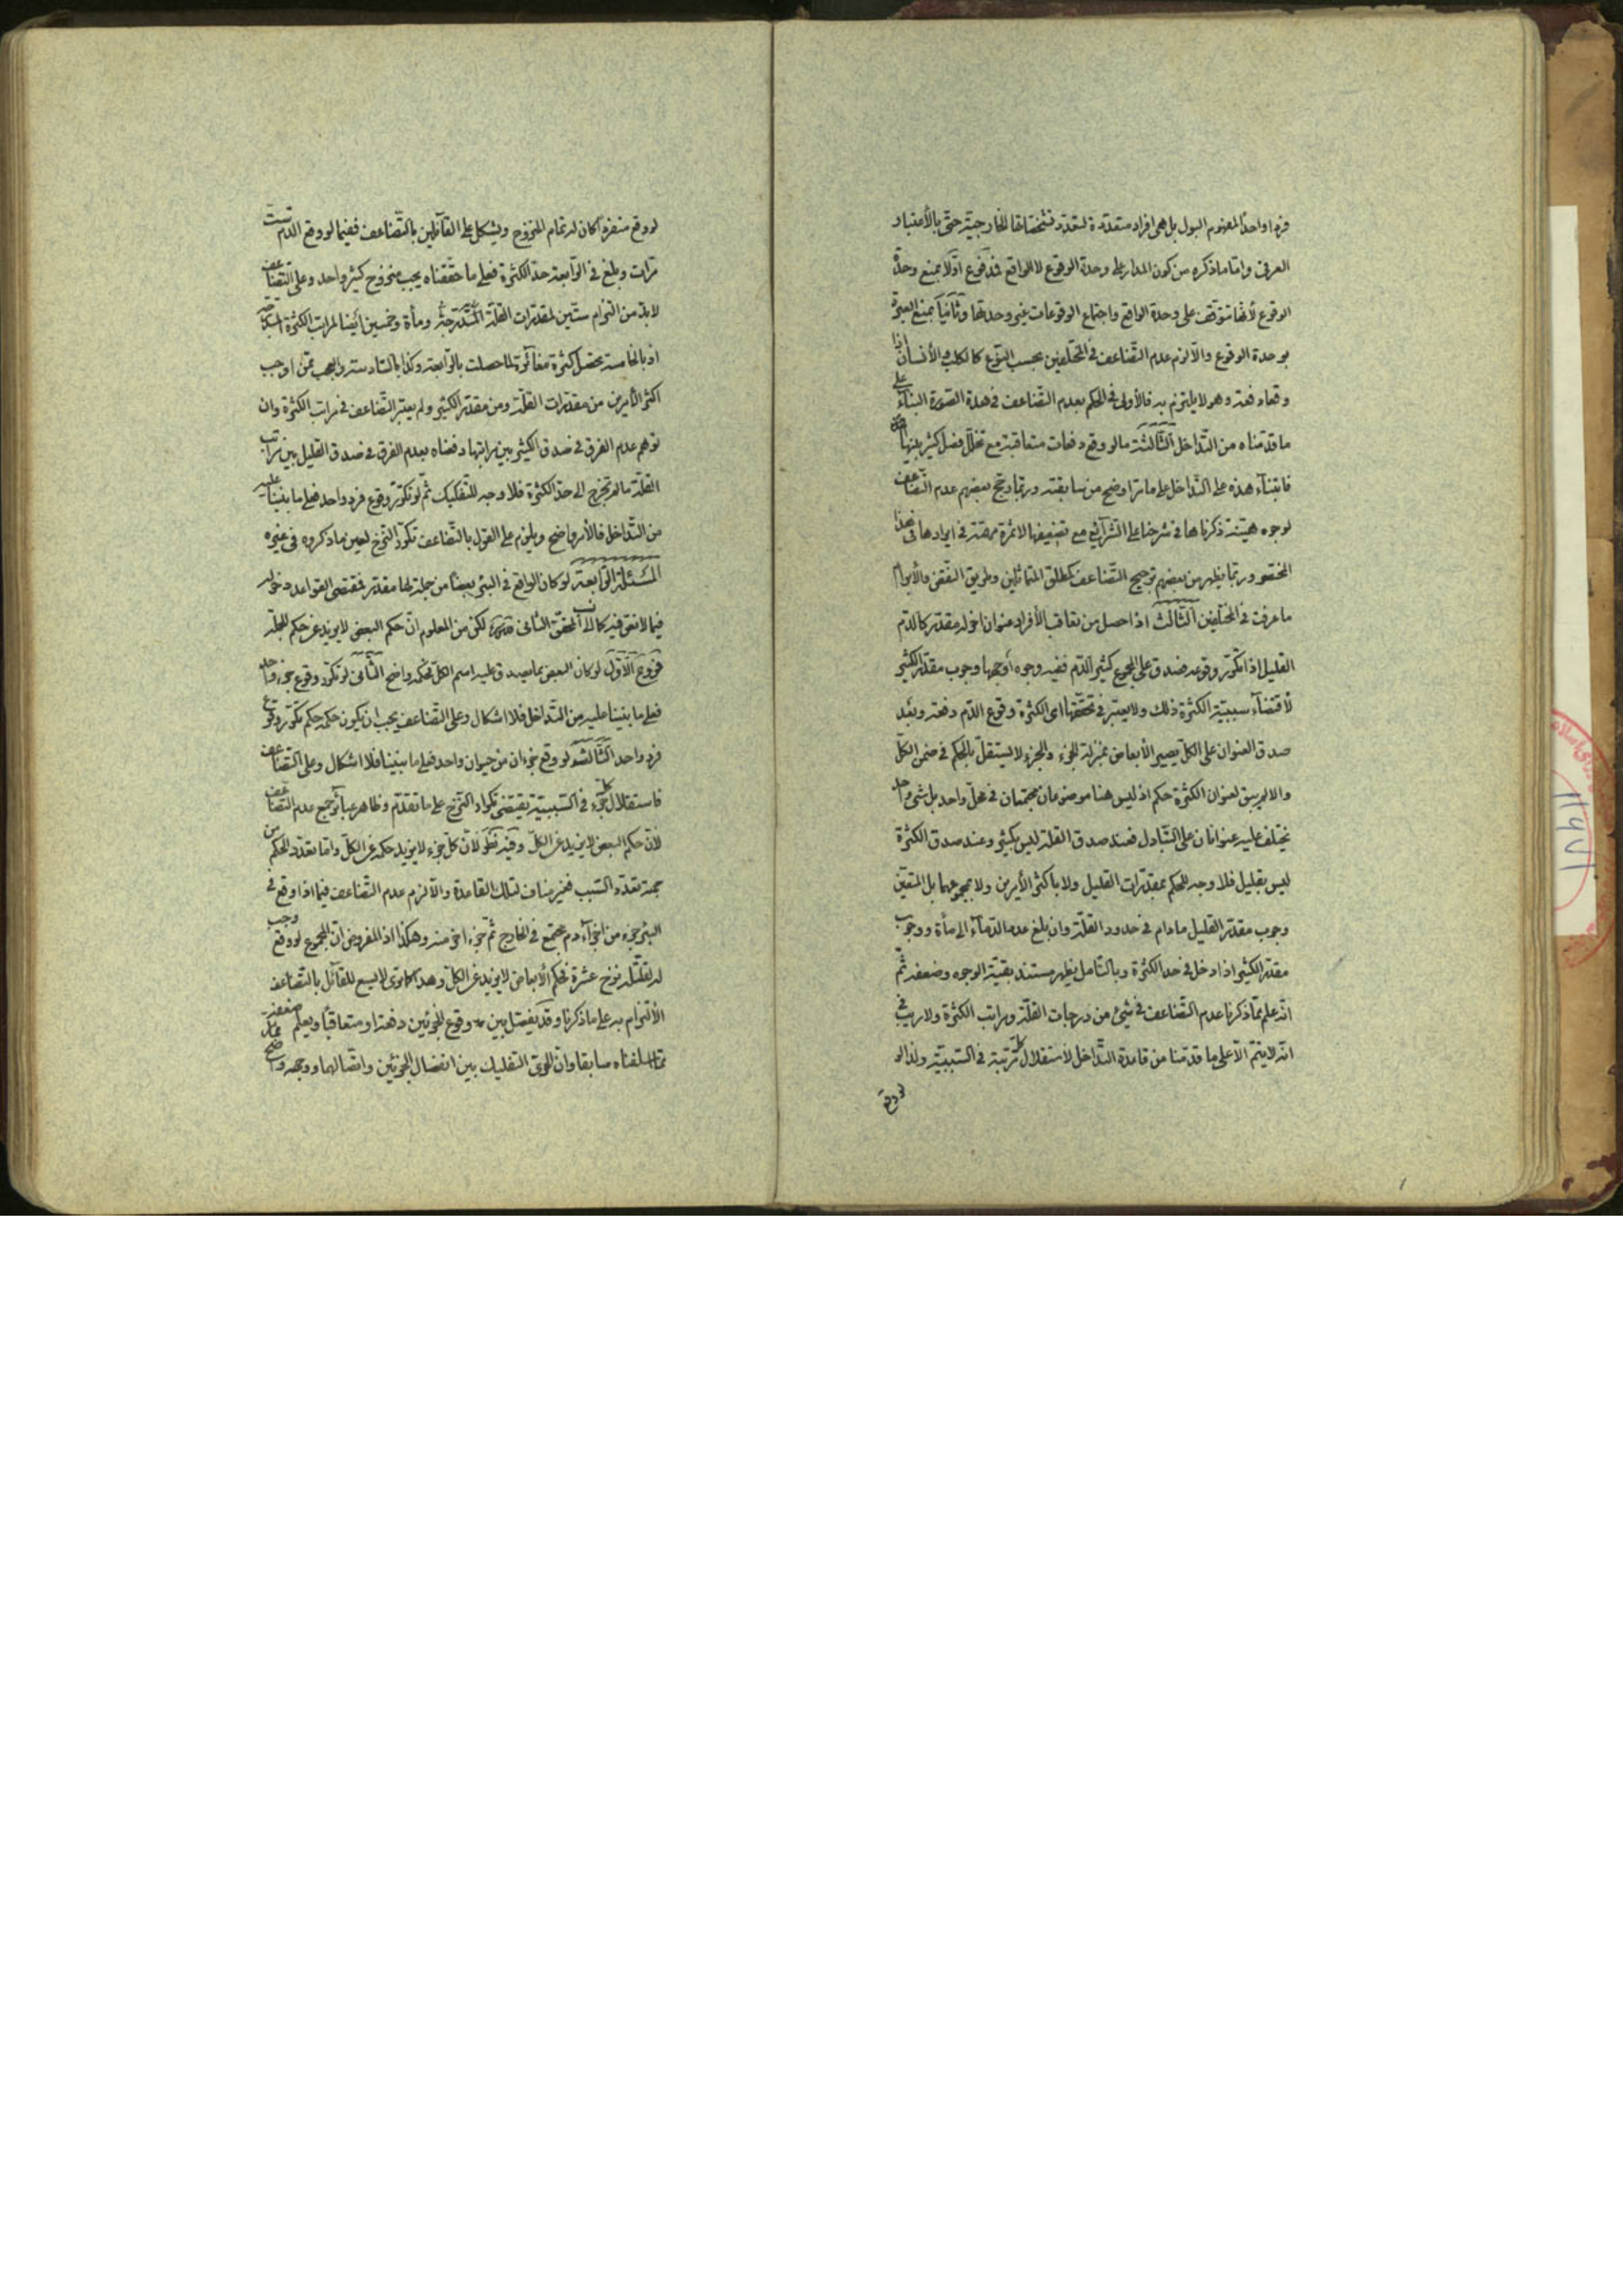 فردا واحدا لمفهوم البول بل هى افراد متعددة لتعدد تشخصاتها الخارجية حتى بالأعتبار
العرفى وامّا ما ذكره من كون المدار على وحدة الوقوع لا الواقع فمدفوع اوّلا بمنع وحدة
الوقوع لأنّها تتوقف على وحدة الواقع واجتماع الوقوعات غير وحدتها وثانيا بمنع العبرة
بوحدة الوقوع والّا لزم عدم التّضاعف فى المختلفين بحسب النّوع كالكلب والأنسان اذا
وقعا دفعة وهو لا يلتزم به فالأولى فى الحكم بعدم التضاعف فى هذة الصّورة البناء على
ما قدّمناه من التّداخل الثّالثة ما لو وقع دفعات متعاقبة مع تخلّل فصل كثير بينها
فابتناء هذه على التّداخل على ما مرّ اوضح من سابقته وربّما رجّح بعضهم عدم التّضاعف
لوجوه هيّنة ذكرناها فى شرحنا على الشّرائع مع تضعيفها لا ثمرة مهمّة فى ايرادها فى هذا
المختصر وربّما يظهر من بعضهم ترجيح التّضاعف كمطلق المتماثلين وطريق النّقض والأبرام
ما عرفت فى المختلفين الثّالث اذا حصل من تعاقب الأفراد عنوان اخر له مقدّر كالدّم
القليل اذا تكرّر وقوعه فصدق على المجموع كثير الدّم ففيه وجوه أوجهها وجوب مقدّر الكثير
لأقتضاء سببيّة الكثرة ذلك ولا يعتبر فى تحقّقها اى الكثرة وقوع الدّم دفعة وبعد
صدق العنوان على الكلّ يصير الأبعاض بمنزلة الجزء والجزء لا يستقلّ بالحكم فى ضمن الكلّ
والا لم يبق لعنوان الكثرة حكم اذ ليس هنا موضوعان مجتمعان فى محلّ واحد بل شىء واحد
يختلف عليه عنوانان على التّبادل فعند صدق القلة ليس بكثير وعند صدق الكثرة
ليس بقليل فلا وجه للحكم بمقدّرات القليل ولا باكثر الأمرين ولا بمجموعهما بل المتعيّن
وجوب مقدّر القليل ما دام فى حدود القلّة وان بلغ عدد الدّماء الى مأة ووجوب
مقدّر الكثير اذا دخل فى حد الكثرة وبالتّأمل يظهر مستند بقيّة الوجوه وضعفه ثم
انّه علم ممّا ذكرنا عدم التّضاعف فى شىء من درجات القلّة ومراتب الكثرة ولا ريب فى
انّه لا يتمّ الّا على ما قدّمنا من قاعدة التّداخل لأستقلال كلّ مرتبة فى السّببيّة ولذا لو
لو وقع
لو وقع منفردا كان له تمام المنزوح ويشكل على القائلين بالتّضاعف ففيما لو وقع الدّم ستّ
مرّات وبلغ فى الرّابعة حدّ الكثرة فعلى ما حقّقناه يجب منزوح كثير واحد وعلى التّضاعف
لا بدّ من التزام ستّين لمقدّرات القلّة المتدرّجة ومأة وخمسين ايضا لمراتب الكثرة
اذ بالخامسة تحصل كثرة مغائرة لما حصلت بالرّابعة وكذا بالسّادسة والعجب ممّن اوجب
اكثر الأمرين من مقدّرات القلّة ومن مقدّر الكثير ولم يعتبر التّضاعف فى مراتب الكثرة وان
توهم عدم الفرق فى صدق الكثير بين مراتبها دفعناه بعدم الفرق فى صدق القليل بين مراتب
القلّة ما لم تخرج الى حدّ الكثرة فلا وجه للتّفكيك ثمّ لو تكرّر وقوع فرد واحد فعلى ما بنينا عليه
من التّداخل فالأمر واضح ويلزم على القول بالتّضاعف تكرّر النّزح لعين ما ذكروه فى غيره
المسئلة الرّابعة لو كان الواقع فى البئر بعضا من جملة لها مقدّر فمقتضى القواعد دخوله
فيما لا نصّ فيه كما نسب الى المحقّق الثّانى قدّه لكن من المعلوم انّ حكم البعض لا يزيد عن حكم الجملة
فروع الأوّل لو كان البعض بما يصدق عليه اسم الكلّ فحكمه واضح الثّانى لو تكرّر وقوع جزء واحد
فعلى ما بنينا عليه من التّداخل فلا اشكال وعلى التّضاعف يجب ان يكون حكمه حكم تكرّر وقوع
فرد واحد الثّالثة لو وقع جزءان من حيوان واحد فعلى ما بنينا فلا اشكال وعلى التّضاعف
فاستقلال كلّ جزء فى السّببيّة يقتضى تكرار النّزح على ما تقدّم وظاهر عبائر جمع عدم التّضاعف
لأنّ حكم البعض لا يزيد عن الكلّ وفيه نظر لأنّ كلّ جزء لا يزيد حكمه عن الكلّ وامّا تعدّد الحكم من
جهة تعدّد السّبب فغير مناف لتلك القاعدة والّا لزم عدم التّضاعف فيما اذا وقع فى
البئر جزء من اجزاء دم مجتمع فى الخارج ثمّ جزء اخر منه وهكذا اذ المفروض انّ المجموع لو وقع وجب
له لقلّته نزح عشرة فحكم الأبعاض لا يزيد عن الكلّ وهذا كما ترى لا يسع للقائل بالتّضاعف
الألتزام به على ما ذكرنا وقد يفصّل بين وقوع الجزئين دفعة او متعاقبا ويعلم ضعفه
ممّا اسلفناه سابقا وانّ اللّازم التفكيك بين انفصال الجزئين واتّصالهما ووجهه واضح